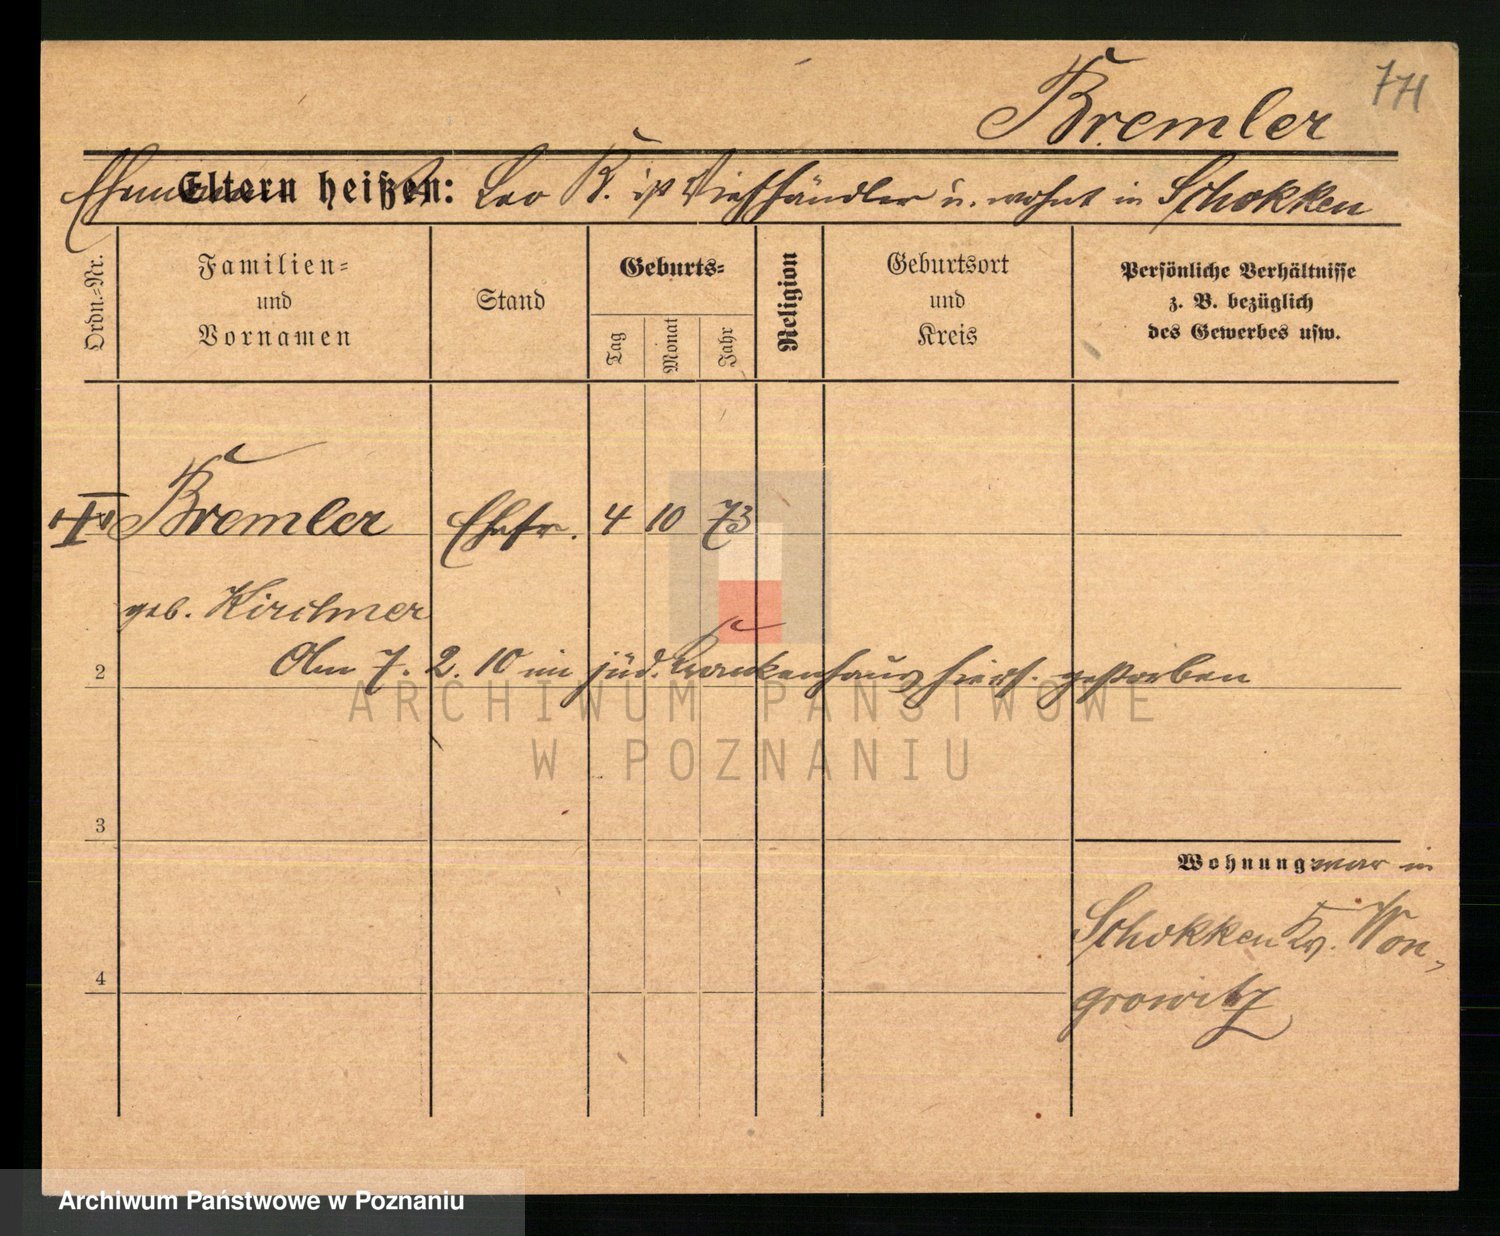 Bremler
771
Ehemann Eltern heißen: Leo B. ist Viehhändler u. wohnt in Schokken
Ordn.-Nr.
Familien-
und
Vornamen
Stand
Geburts-
Tag
Monat
Jahr
Religion
Geburtsort
und
Kreis
Persönliche Verhältnisse
z. B. bezüglich
des Gewerbes usw.
Bremler Ehefr. 4 10 73
geb. Kirschner
Am 7. 2. 10 im jüd. Krankenhaus hiers. gestorben
2
3
4
Wohnung war in
Schokken Kr. Won-
growitz
ARCHIWUM PAŃSTWOWE
W POZNANIU
Archiwum Państwowe w Poznaniu